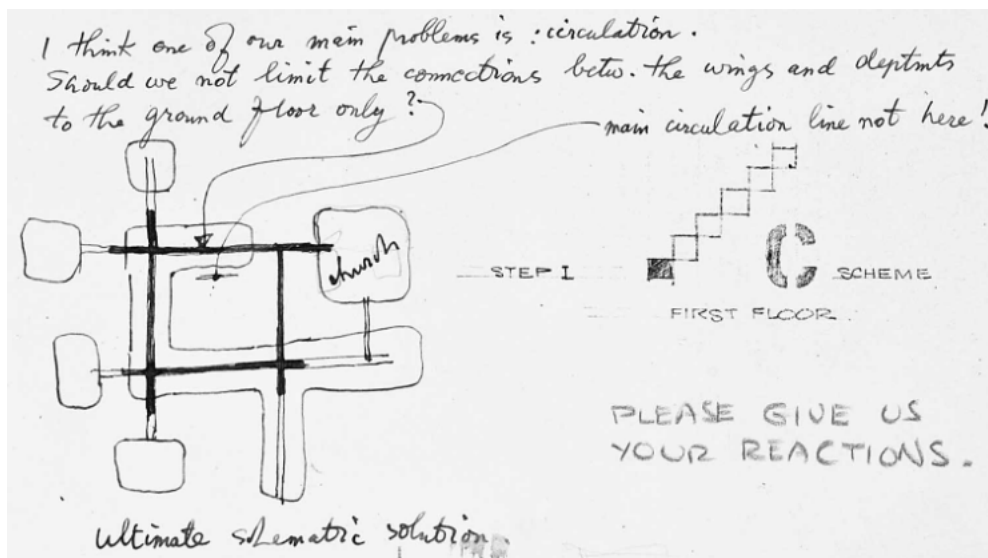 I think one of our main problems is : circulation.
Should we not limit the connections betw. the wings and deptmts
to the ground floor only?
main circulation line not here!
church
STEP I
C SCHEME
FIRST FLOOR
PLEASE GIVE US
YOUR REACTIONS.
ultimate schematic solution.